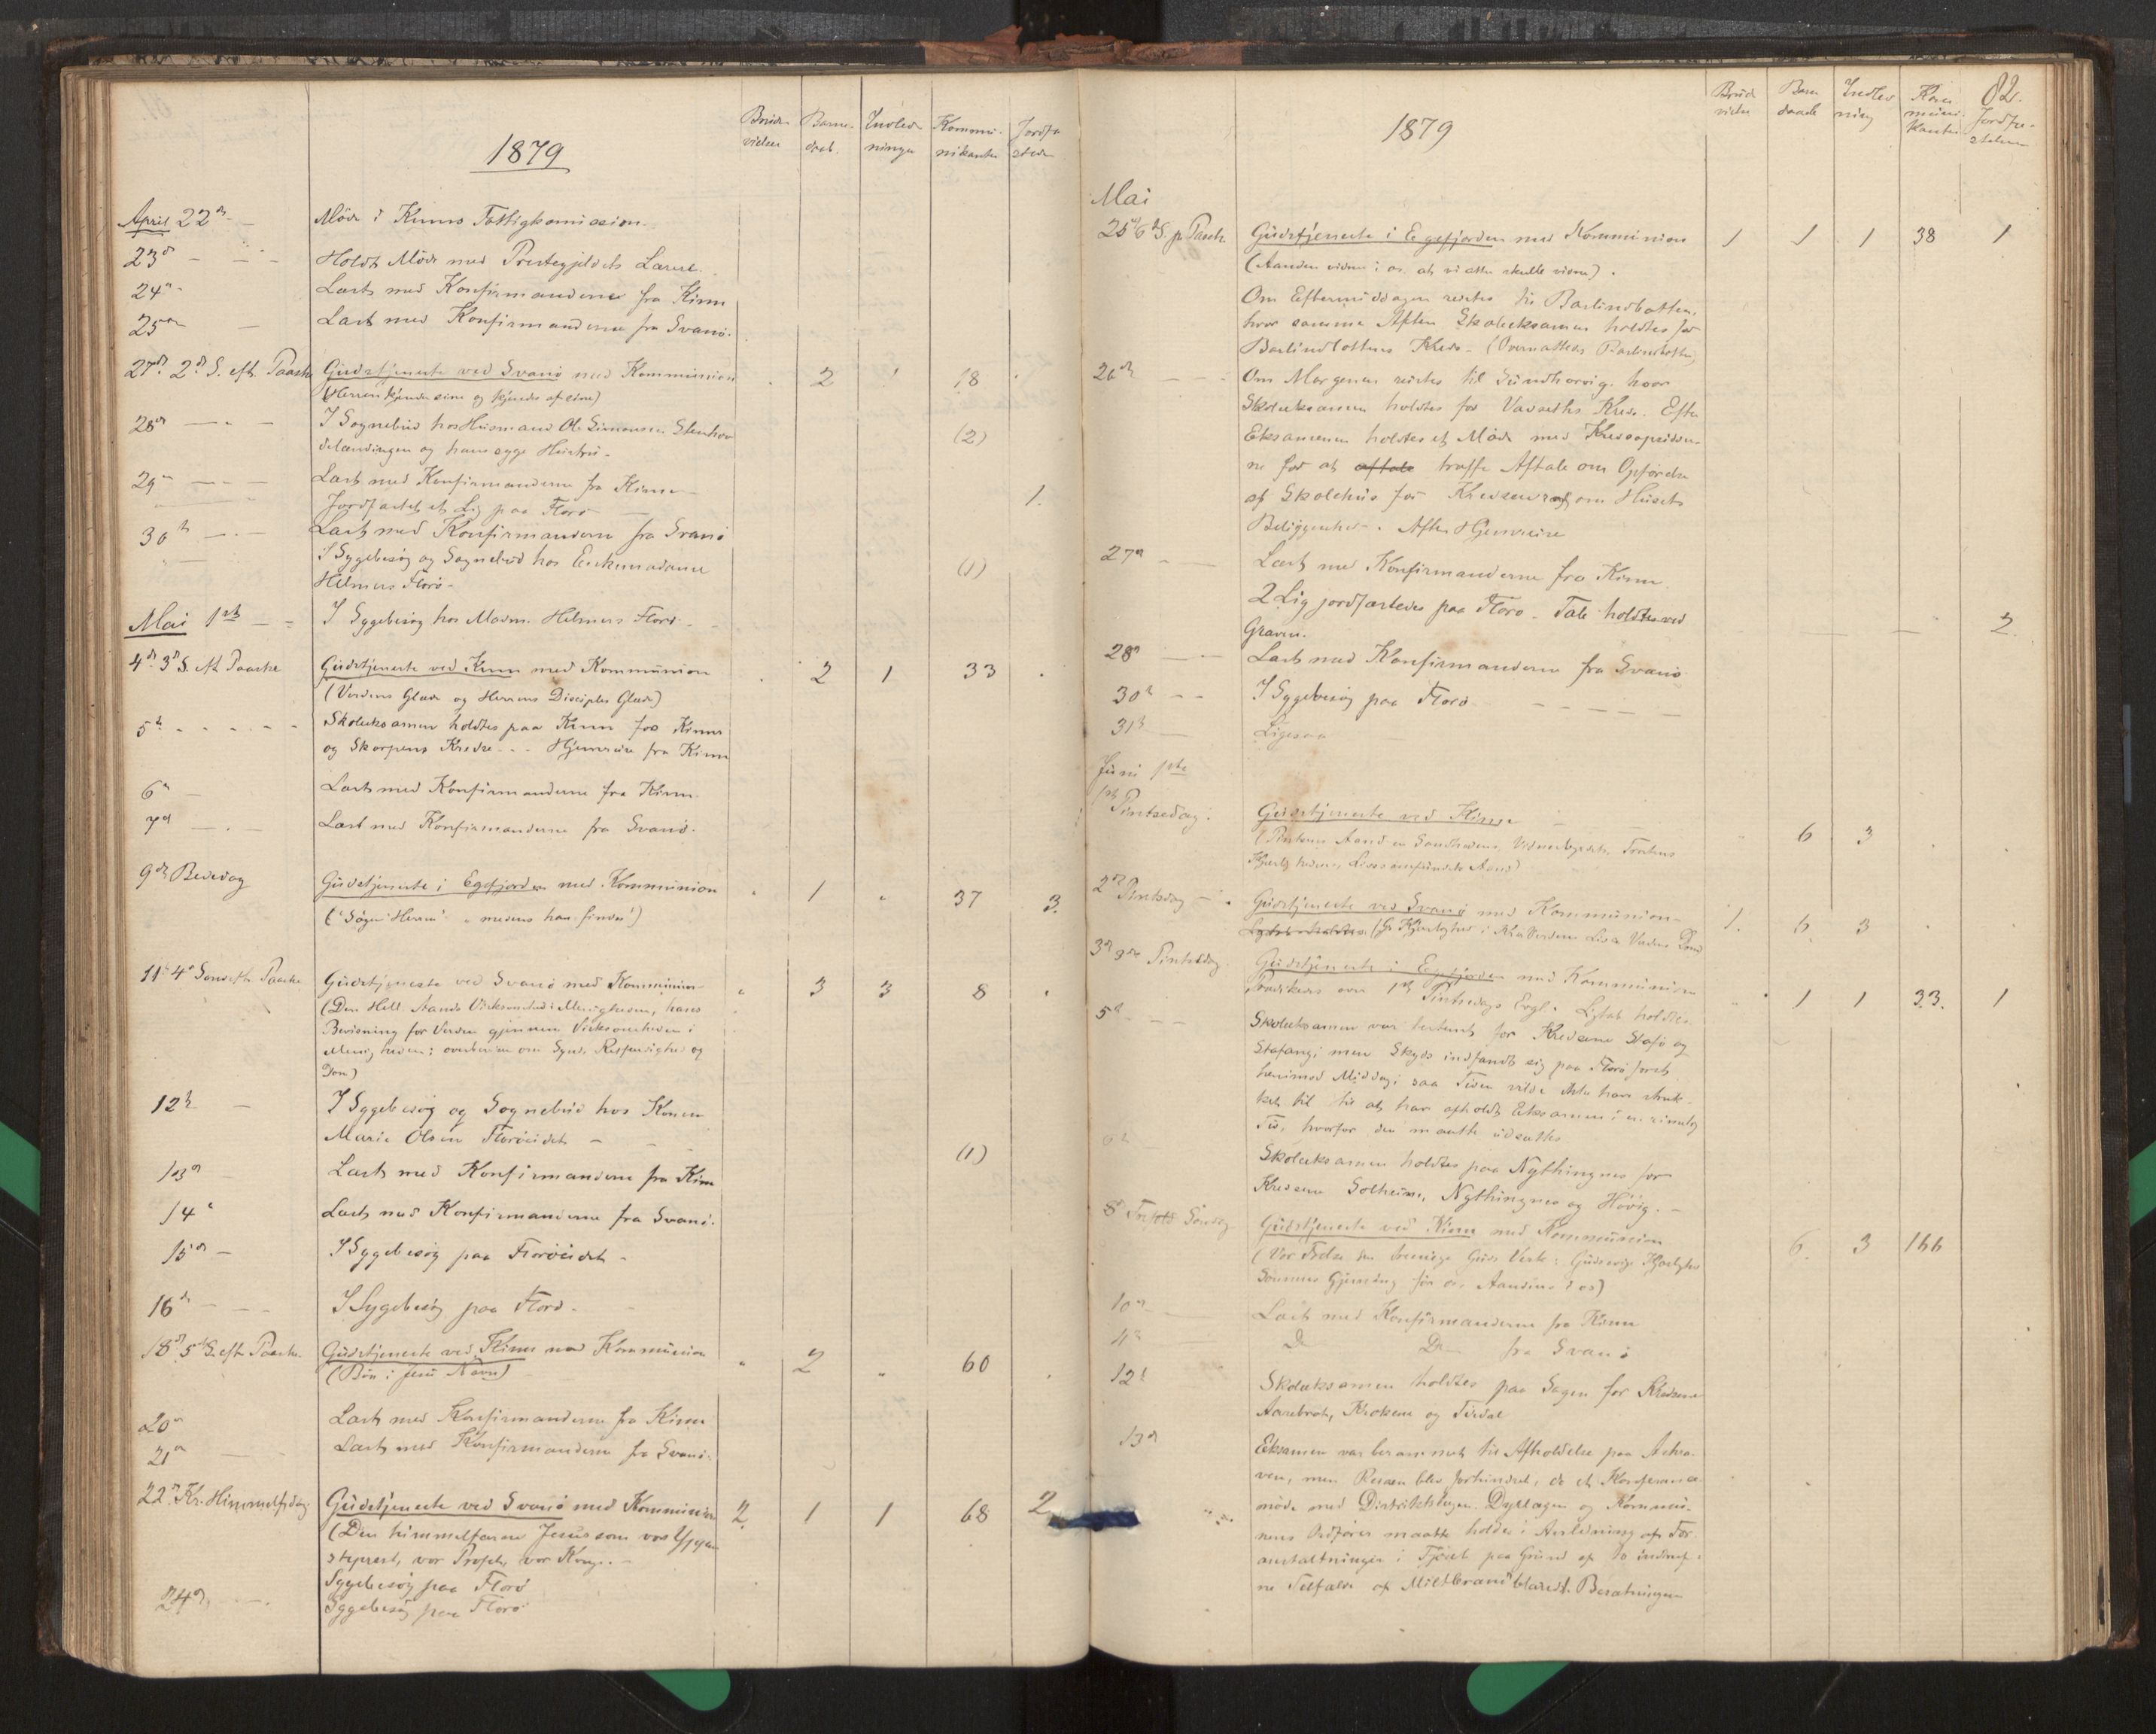 1879
Brude-
vielser
Barne-
daab.
Indled-
ninger
Kommu-
nikanter
Jordfæ-
stelser
April 22de Möde i Kinns Fattigkomission
23d Holdt Möde med Prestegjeldets Lærere.
24de Læst med Konfirmanderne fra Kinn
25de Læst med Konfirmanderne fra Svanö.
27de 2d S. eft. Paaske Gudstjeneste ved Svanö med Kommunion 2 1 18
(Herren kjender sine og kjendes af sine)
28de I Sognebud hos Husmand Ole Simonsen
og hans syge Hustru - (2)
29de Læst med Konfirmanderne fra Kinn
Jordfæstet et Lig paa Florö 1.
30te Læst med Konfirmanderne fra Svanö
I Sygebesög og Sognebud hos Enkemadame (1)
Helmers Florö -
Mai 1ste I Sygebesög hos Madm. Helmers Florö -
4de 3d S. eft. Paaske Gudstjeneste ved Kinn med Kommunion 2 1 33
(Verdens Glæde og Herrens Disciples Glæde)
5te Skoleeksamen holdtes paa Kinn for Kinns
og Skorpens Kredse - Hjemreise fra Kinn
6te Læst med Konfirmanderne fra Kinn.
7de Læst med Konfirmanderne fra Svanö.
9de Bededag Gudstjeneste i Egefjorden med Kommunion 1 " 37 3.
("Söger Herren" medens han findes")
11te 4d Sond eft. Paaske Gudstjeneste ved Svanö med Kommunion 3 3 8
(Den Hell. Aands Virksomhed i Menigheden, hans
Bevisning for Verden gjennem Virksomheden i
Menigheden; overbevise om Synd, Retfærdighed og
Dom)
12te I Sygebesög og Sognebud hos Konen
Marie Olsen Floröeidet - (1)
13de Læst med Konfirmanderne fra Kinn
14de Læst med Konfirmanderne fra Svanö.
15de I Sygebesög paa Floröeidet -
16de I Sygebesög paa Florö.
18de 5d S. eft. Paaske. Gudstjeneste ved Kinn med Kommunion 2 " 60
(Bön i Jesu Navn)
20de Læst med Konfirmanderne fra Kinn
21de Læst med Konfirmanderne fra Svanö.
22de Kr. Himmelfsdag Gudstjeneste ved Svanö med Kommunion 2. 1 1 68 2
(Den himmelfarne Jesus som vor Ypper-
stepræst, vor Profet, vor Konge. -
Sygebesög paa Florö
24de Sygebesög paa Florö
82.
1879
Brude
vielse
Barne
daab
Indled
ning
Kom
muni-
kanter
Jordfæ-
stelser
Mai
25de 6d S. p. Paask. Gudstjeneste i Egefjorden med Kommunion 1 1 1 38 1
(Aanden vidner i os at vi atter skulle vidne).
Om Eftermiddagen reistes til Barlindbotten,
hvor samme Aften Skoleeksamen holdtes for
Barlindbottens Kreds - (Overnattedes Barlindbotten)
26de Om Morgenen reistes til hvor
Skoleeksamen holdtes for Vasseths Kreds. Efter
Eksamenen holdtes et Möde med
ne for at aftale træffe Aftale om Opförelse
af Skolehus for Kredsen og om Husets
Beliggenhed. Aften Hjemreise
27de Læst med Konfirmanderne fra Kinn.
2 Lig jordfæstedes paa Florö. Tale holdtes ved
Graven. 2.
28de Læst med Konfirmanderne fra Svanö
30te I Sygebesög paa Florö
31te Ligesaa
Juni 1ste
1ste Pintsedag. Gudstjeneste ved Kinn 6 3
(Pintsens Aand er Sandhedens, Vidnesbyrdets, Trostens
Kjærlighedens, Aand)
2den Pintsdag Gudstjeneste ved Svanö med Kommunion 1. 6 3
(Gs Kjærlighed i Verdens Lys Dom
3d 3die Pintsdag Gudstjeneste i Egefjorden med Kommunion
Prædikedes over 1ste Pintsedags Evgl. Ligtale holdtes. 1 1 33. 1
5te Skoleeksamen var berammet for Kredsene Stafö og
Stafang; men Skyds indfandt sig paa Florö först
henimod Middag; saa Tiden vilde ikke have strak-
ket til til at have afholdt Eksamen i en rimelig
Tid, hvorfor den maatte udsættes
6te Skoleeksamen holdtes paa Nythingnes for
Kredsene Solheims, Nythingnes og Hövig. -
8de Trefold. Söndag Gudstjeneste ved Kinn med Kommunion 6. 3 166
(Vor Frelse den treenige Guds Verk: Guds evige Kjærlighed
Sönnens Gjerning for os, Aandens i os)
10de Læst med Konfirmanderne fra Kinn
Do Do fra Svanö
12te Skoleeksamen holdtes paa Sagen for Kredsene
Aarebrot, Krokene og Tirdal
13de Eksamen var berammet til Afholdelse paa
ven, men Reisen blev forhindret, da et Konferance
möde med Distriktslægen, Dyrlægen og Kommu-
nens Ordförer maatte holdes i Anledning af For-
anstaltninger i paa Grund af to indtruf-
ne Tilfælde af Miltbrand blandt Besætningen